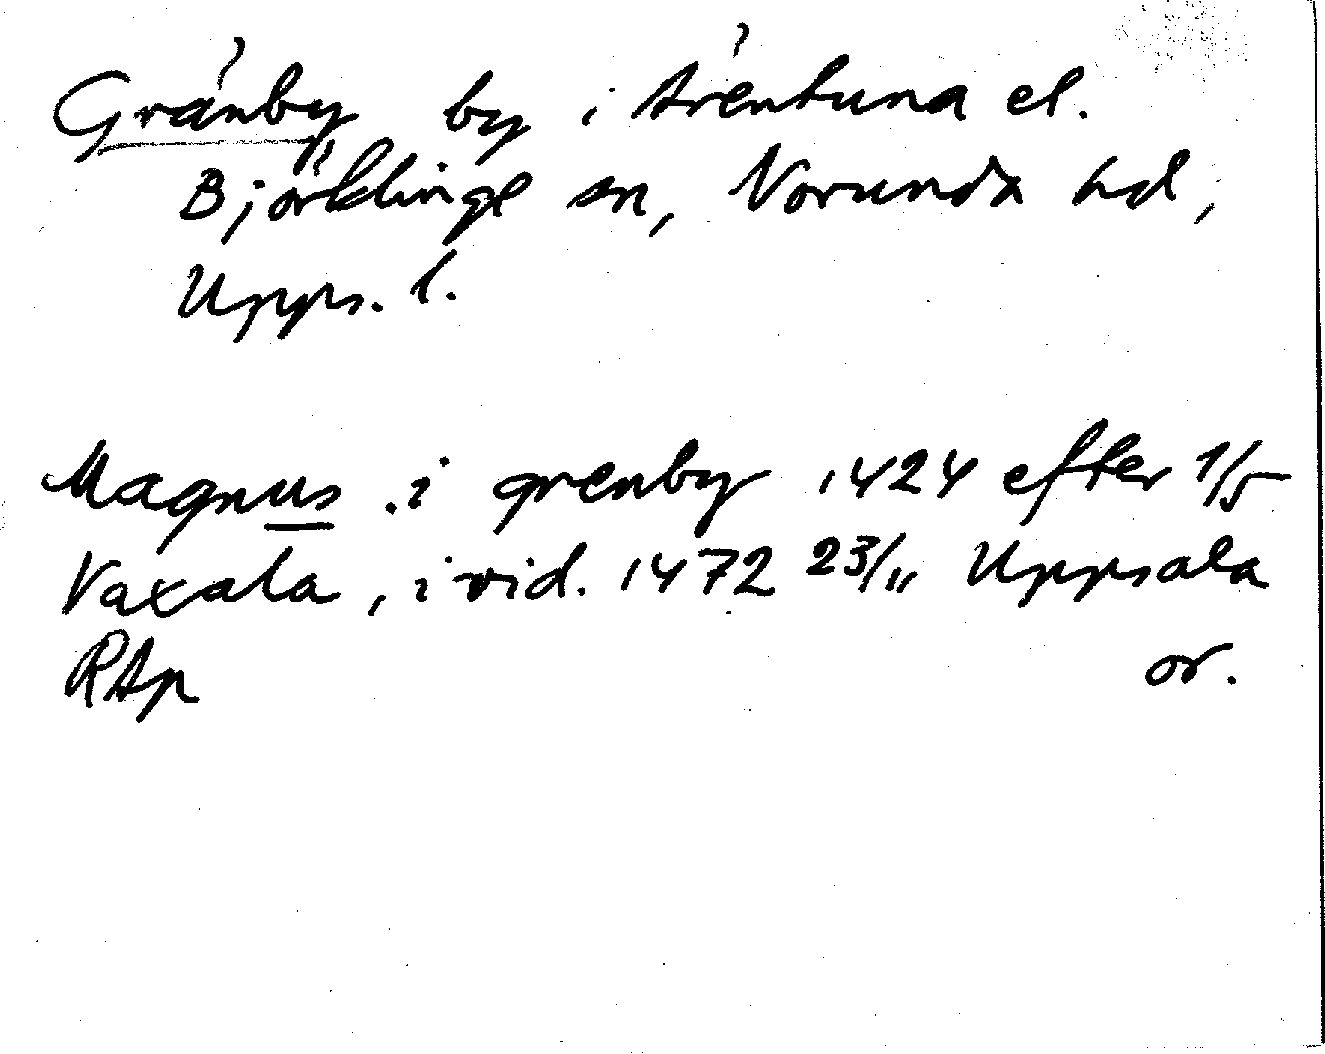 Gränby by i Ärentuna el.
Björklinge sn, Norunda hd,
Upps. l.
Magnus .i grenby 1424 efter 1/5
Vaxala, i vid. 1472 23/11 Uppsala
RAp or.